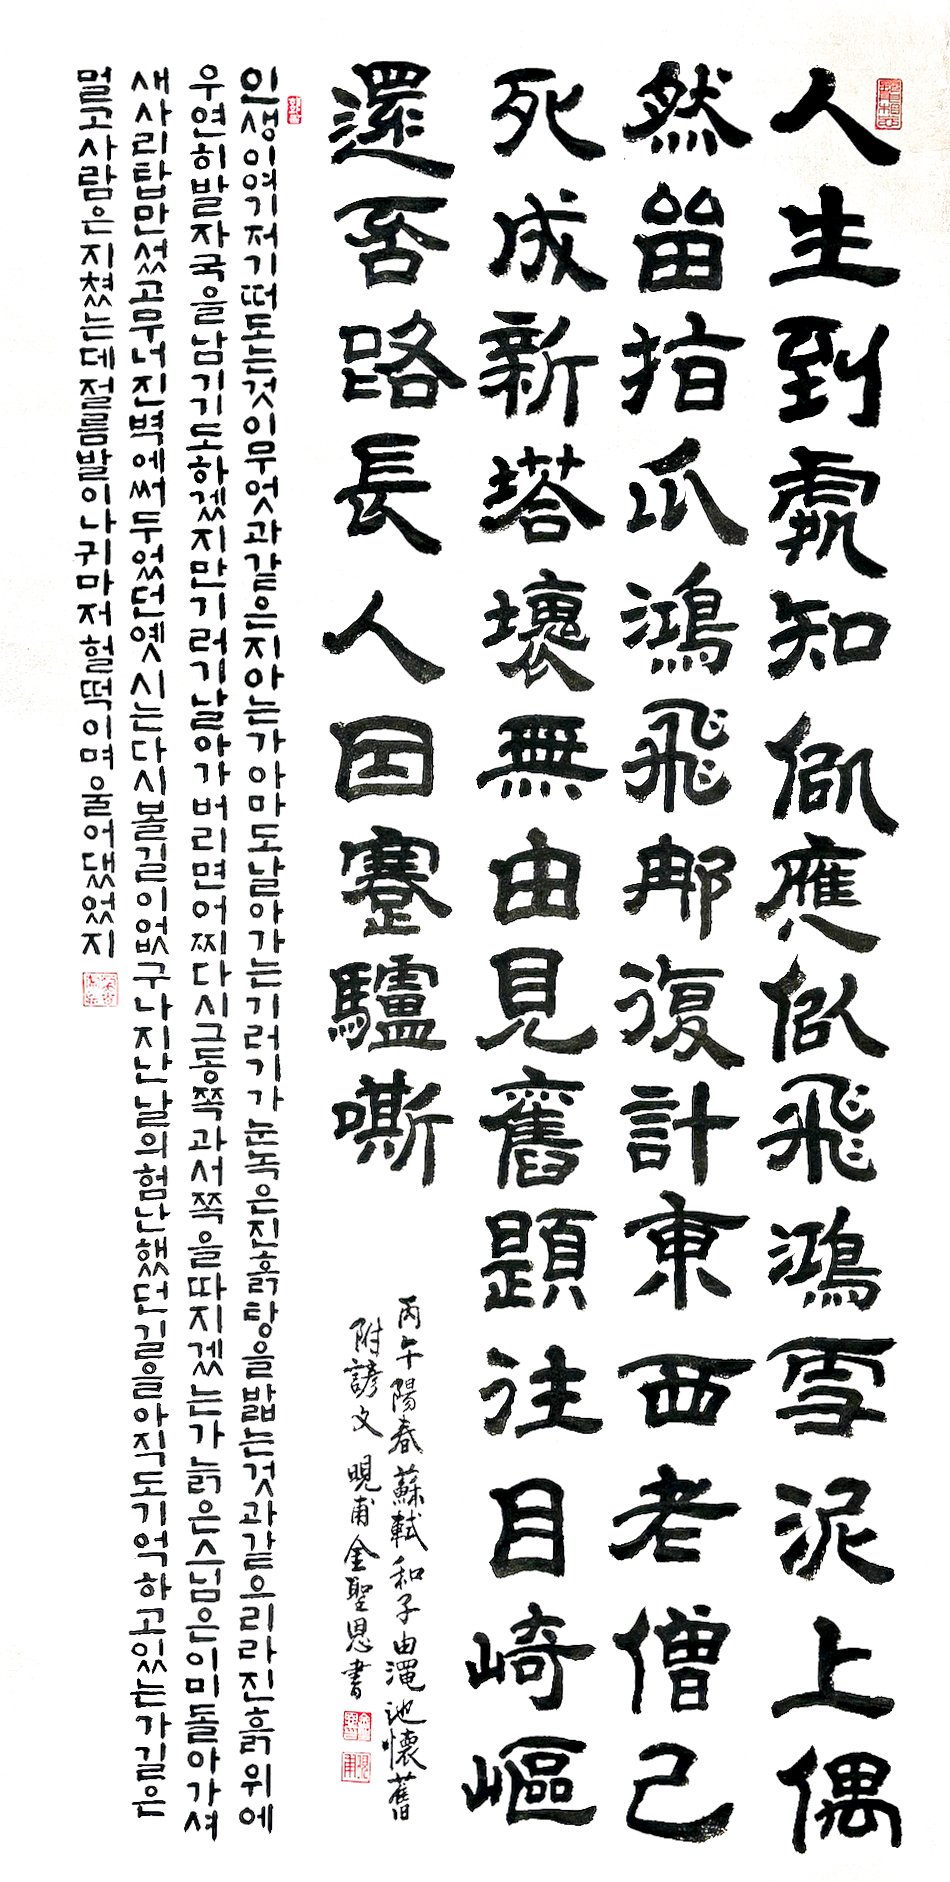 人生到處知應似飛鴻雪泥上偶
然畱指爪鴻飛那復計東西老僧已
死成新塔壞無由見舊題往日崎嶇
還否路長人困蹇驢嘶
丙午陽春 蘇軾和子由澠池懷舊
附諺文 晛甫金聖恩書
인생이여기저기떠도는것이무엇과같은지아는가아마도날아가는기러기가눈녹은진흙탕을밟는것과같으리라진흙위에
우연히발자국을남기도하겠지만기러기날아가버리면어찌다시그동쪽과서쪽을따지겠는가늙은스님은이미돌아가셔
새사리탑만섰고무너진벽에써두었던옛시는다시볼길이없구나지난날의험난했던길을아직도기억하고있는가길은
멀고사람은지쳤는데절름발이나귀마저헐떡이며울어댔었지